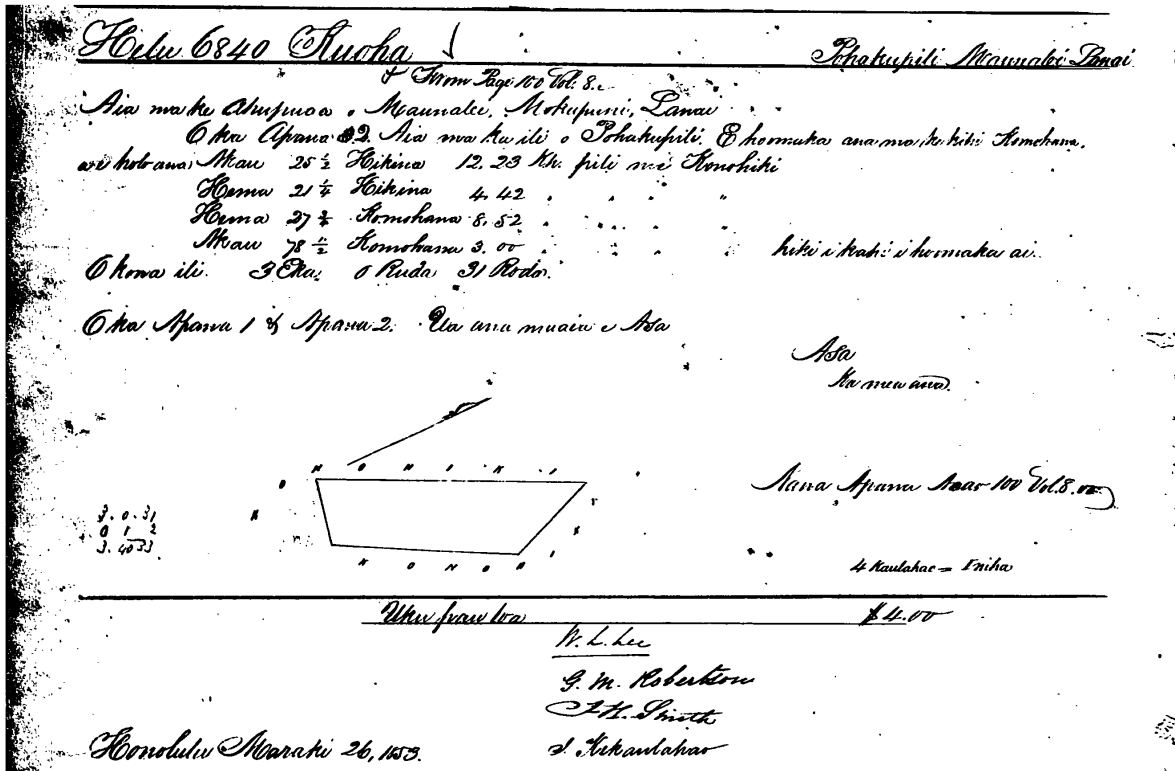 Helu 6840 Kuoha Pohakupili Maunalei Lanai
From Page 100 Vol. 8.
Aia ma ke Ahupuaa o Maunalei, Mokupuni, Lanai
O ka Apana 2. Aia ma ka ili o Pohakupili. E hoomaka ana ma ke kihi Komohana,
a e holo ana Akau 25 1/2 Hikina 12.23 Kh. pili me Konohiki
Hema 21 1/4 Hikina 4.42 " " " "
Hema 27 Komohana 8.52 " " " "
Akau 78 1/2 Komohana 3.00 " " " " hiki i kahi i hoomaka ai.
O kona ili. 3 Eka 0 Ruda 31 Roda.
O ka Apana 1 & Apana 2. Ua ana muaia e Asa
Asa
Ka mea ana.
K O N O H I K I
3. 0. 31
0 1 2
Nana Apana Aoao 100 Vol. 8.
K O N O H I K I
4 Kaulahao = Iniha
Uku pau loa $4.00
W. L. Lee
G. M. Robertson
J. H. Smith
J. Kekaulahao
Honolulu Maraki 26, 1853.